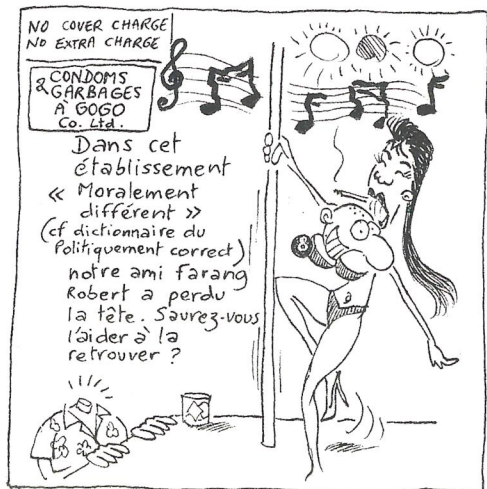 NO COVER CHARGE
NO EXTRA CHARGE
& CONDOMS
GARBAGES
A GOGO
Co. Ltd.
Dans cet
établissement
« Moralement
différent »
(cf dictionnaire du
Politiquement correct)
notre ami farang
Robert a perdu
la tête. Saurez-vous
l'aider à la
retrouver ?